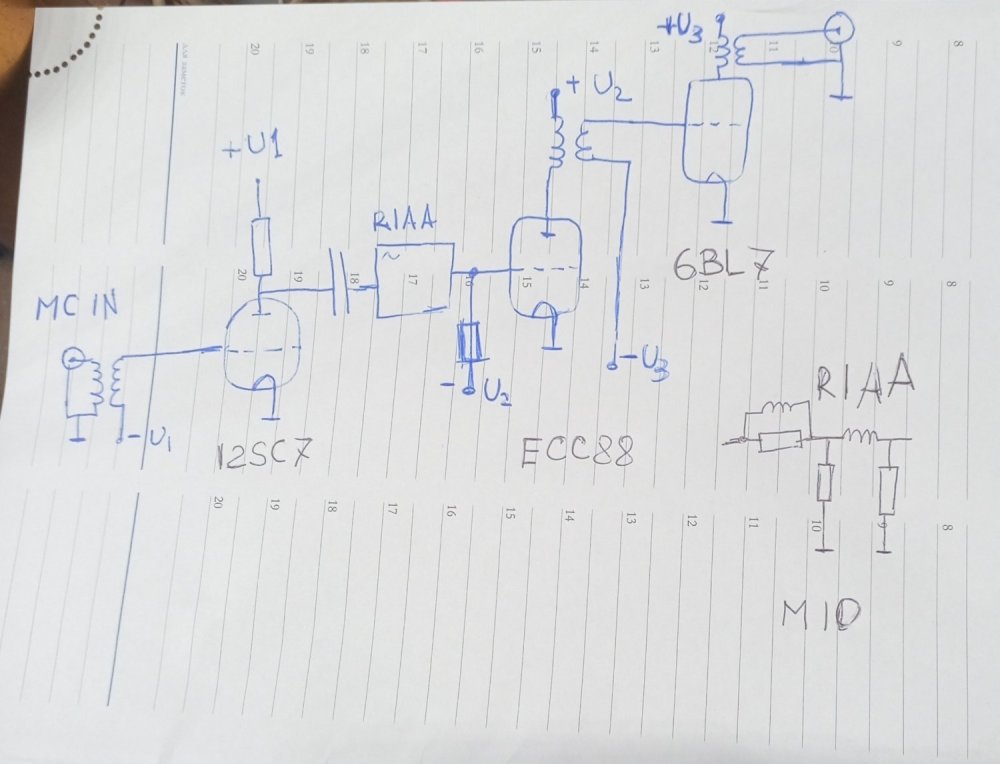 +U3
+ U2
+U1
RIAA
6BL7
MC IN
-U3
- U2
-U1
RIAA
12SC7
ECC88
MID
для заметок
20 19 18 17 16 15 14 13 12 11 10 9 8
20 19 18 17 16 15 14 13 12 11 10 9 8
20 19 18 17 16 15 14 13 12 11 10 9 8